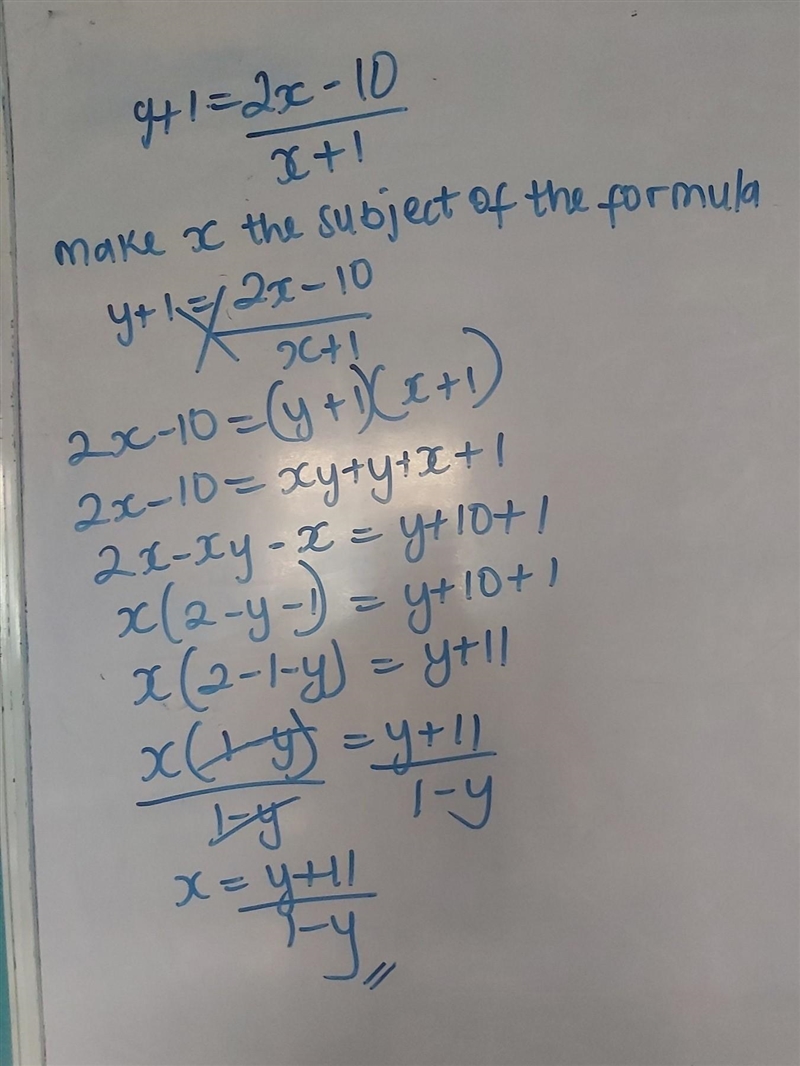 y+1=2x-10
x+1
make x the subject of the formula
y+1=2x-10
x+1
2x-10=(y+1)(x+1)
2x-10=xy+y+x+1
2x-xy-x=y+10+1
x(2-y-1)=y+10+1
x(2-1-y)=y+11
x(1-y)=y+11
1-y 1-y
x=y+11
1-y